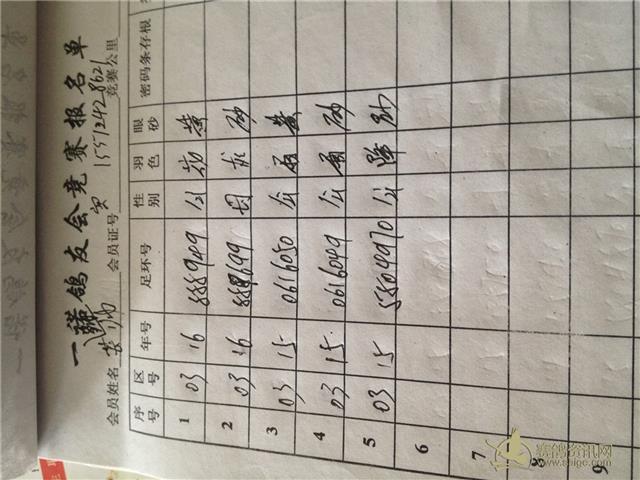 一诺鸽友会竞赛报名单
会员姓名 会员证号 15512428621 竞赛公里
序号 区号 年号 足环号 性别 羽色 眼砂 密码条存根
1 03 16 888949 公 黄
2 03 16 母 砂
3 03 15 0616050 公 雨 黄
4 03 15 0616049 公 雨 砂
5 03 15 公 绛 砂
6
7
8
9
赛鸽资讯网
www.saigc.com